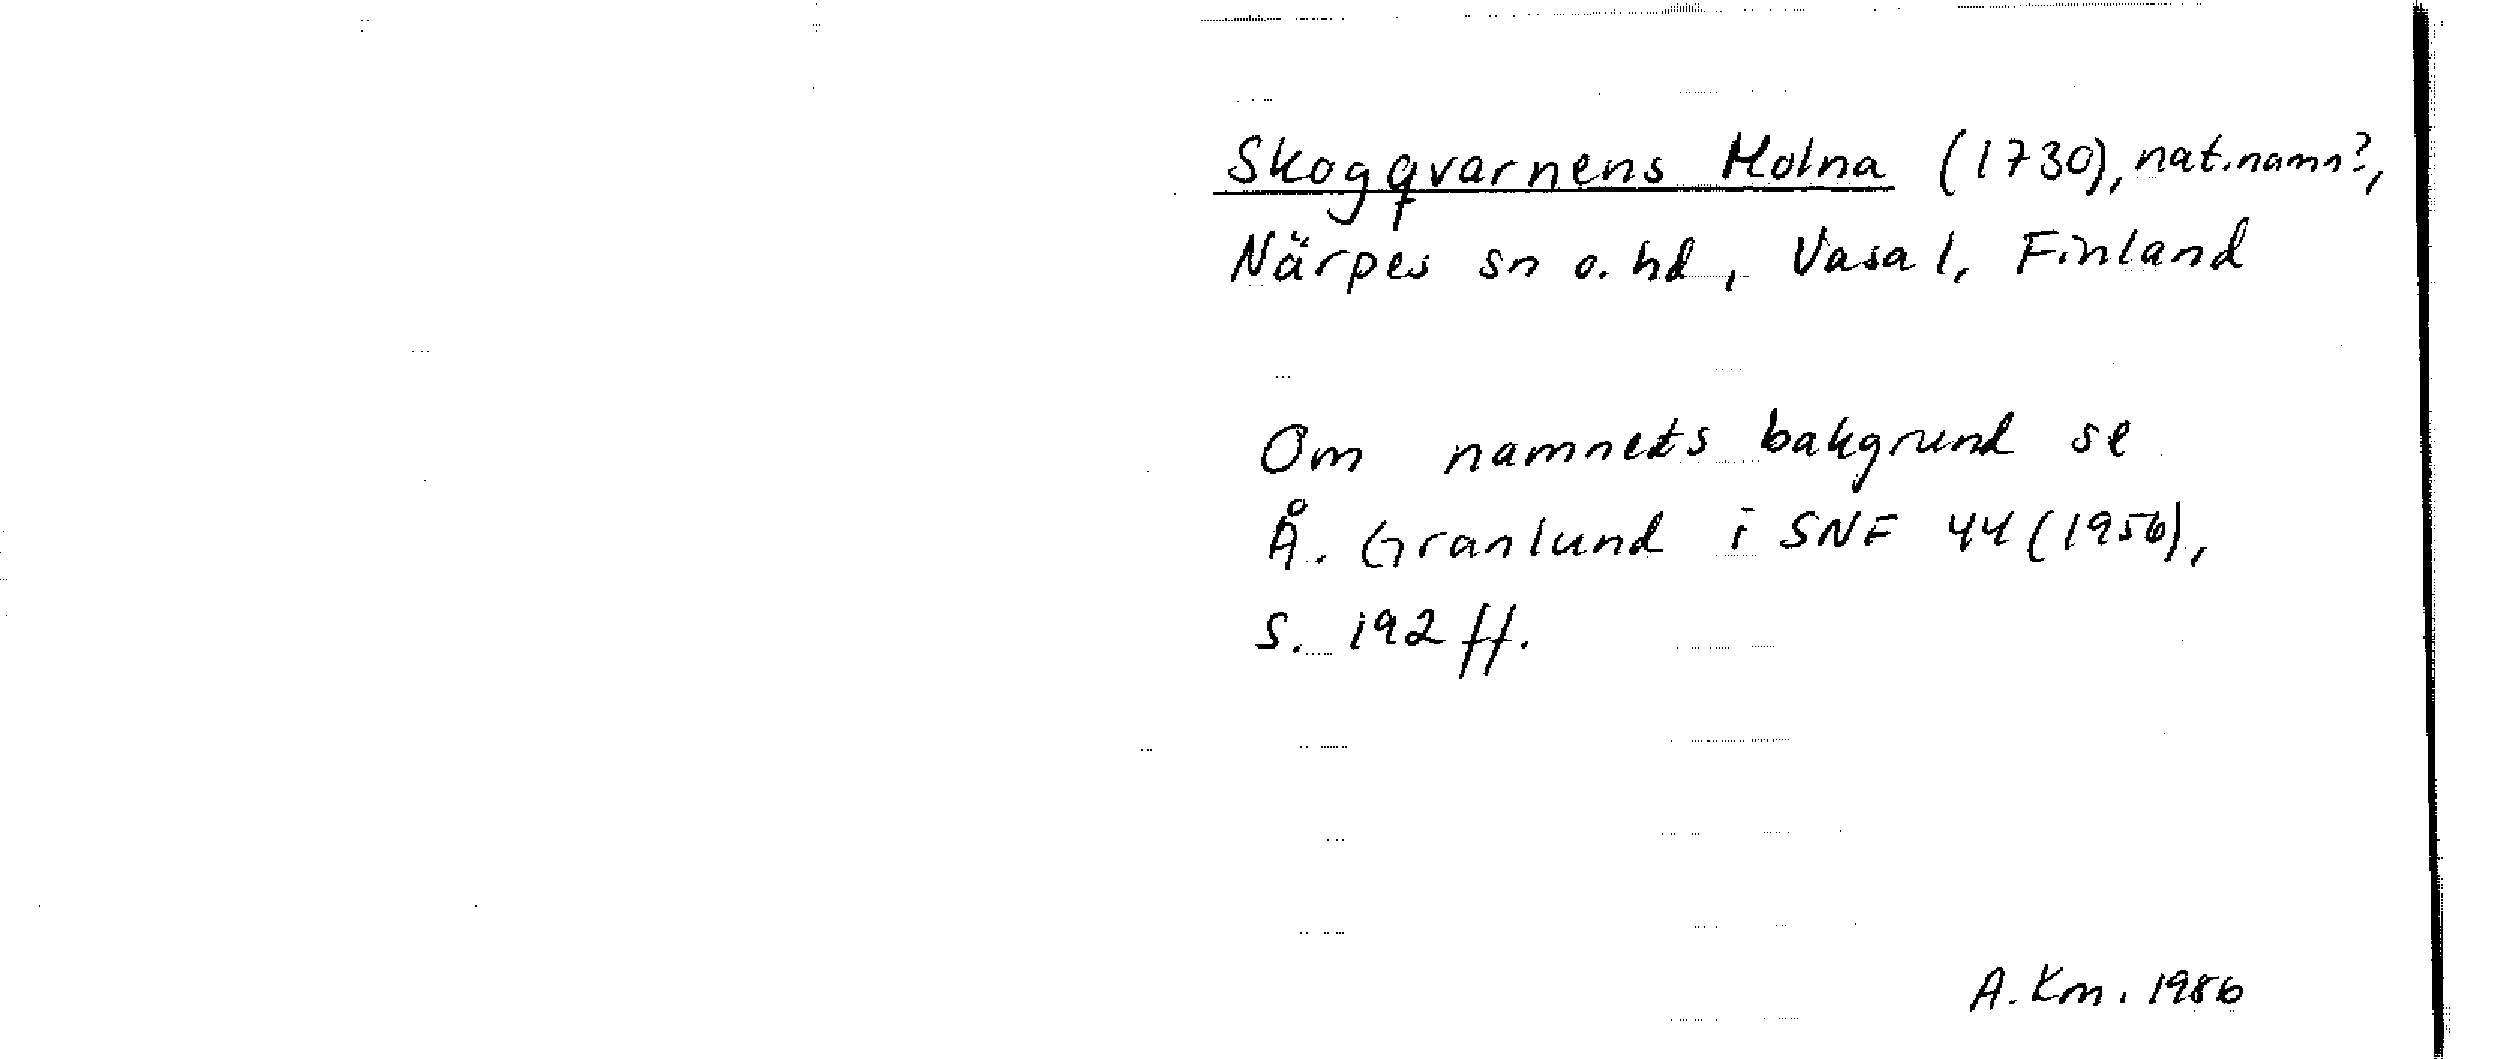 Skogqvarnens Holna (1730), nat.namn?,
Närpes sn o. hd, Vasa l, Finland
Om namnets bakgrund se
Å. Granlund i SNF 44 (1956),
s. 192 ff.
A. Km. 1986